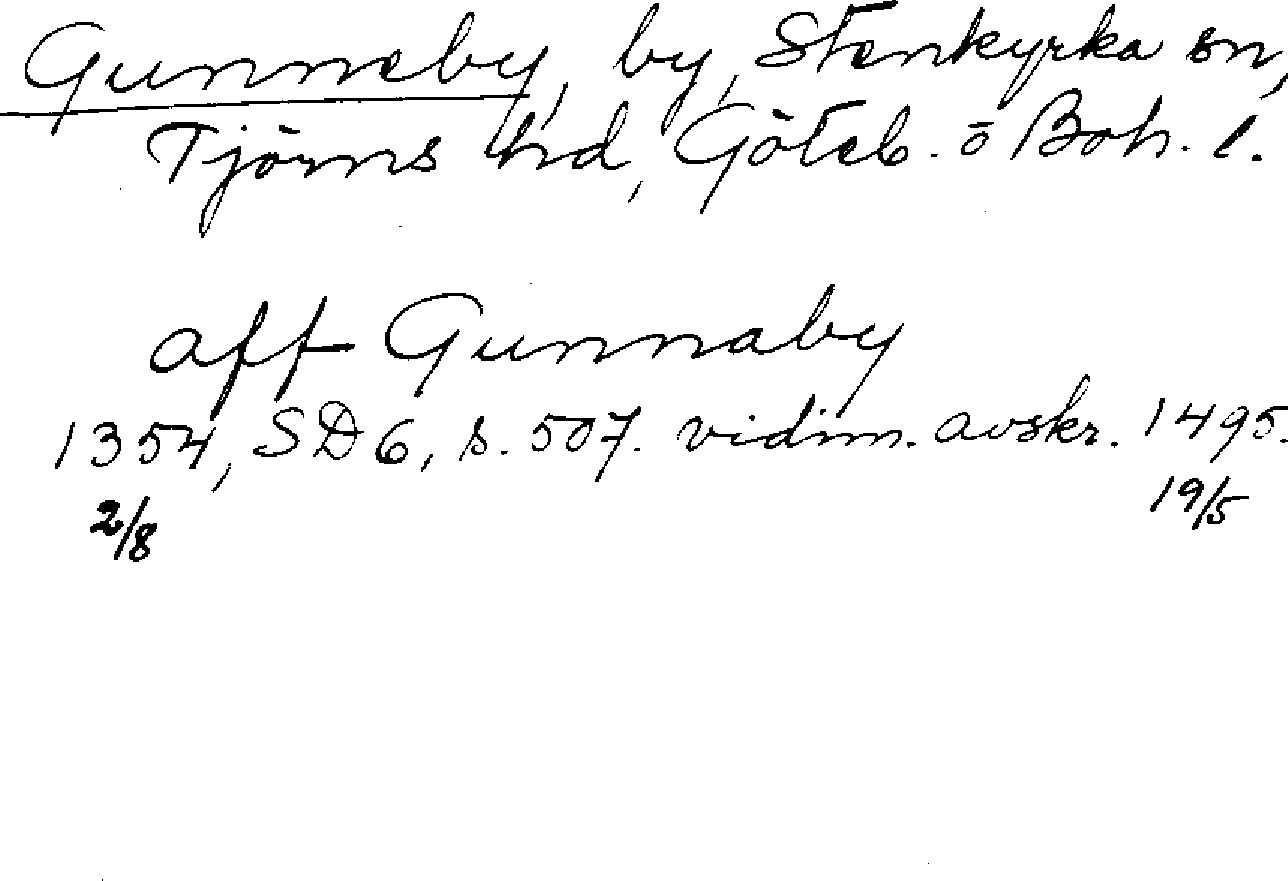 Gunneby, by, Stenkyrka sn,
Tjörns hd, Göteb. ō Boh. l.
aff Gunnaby
1354, SD 6, s. 507. vidim. avskr. 1495.
2/8 19/5